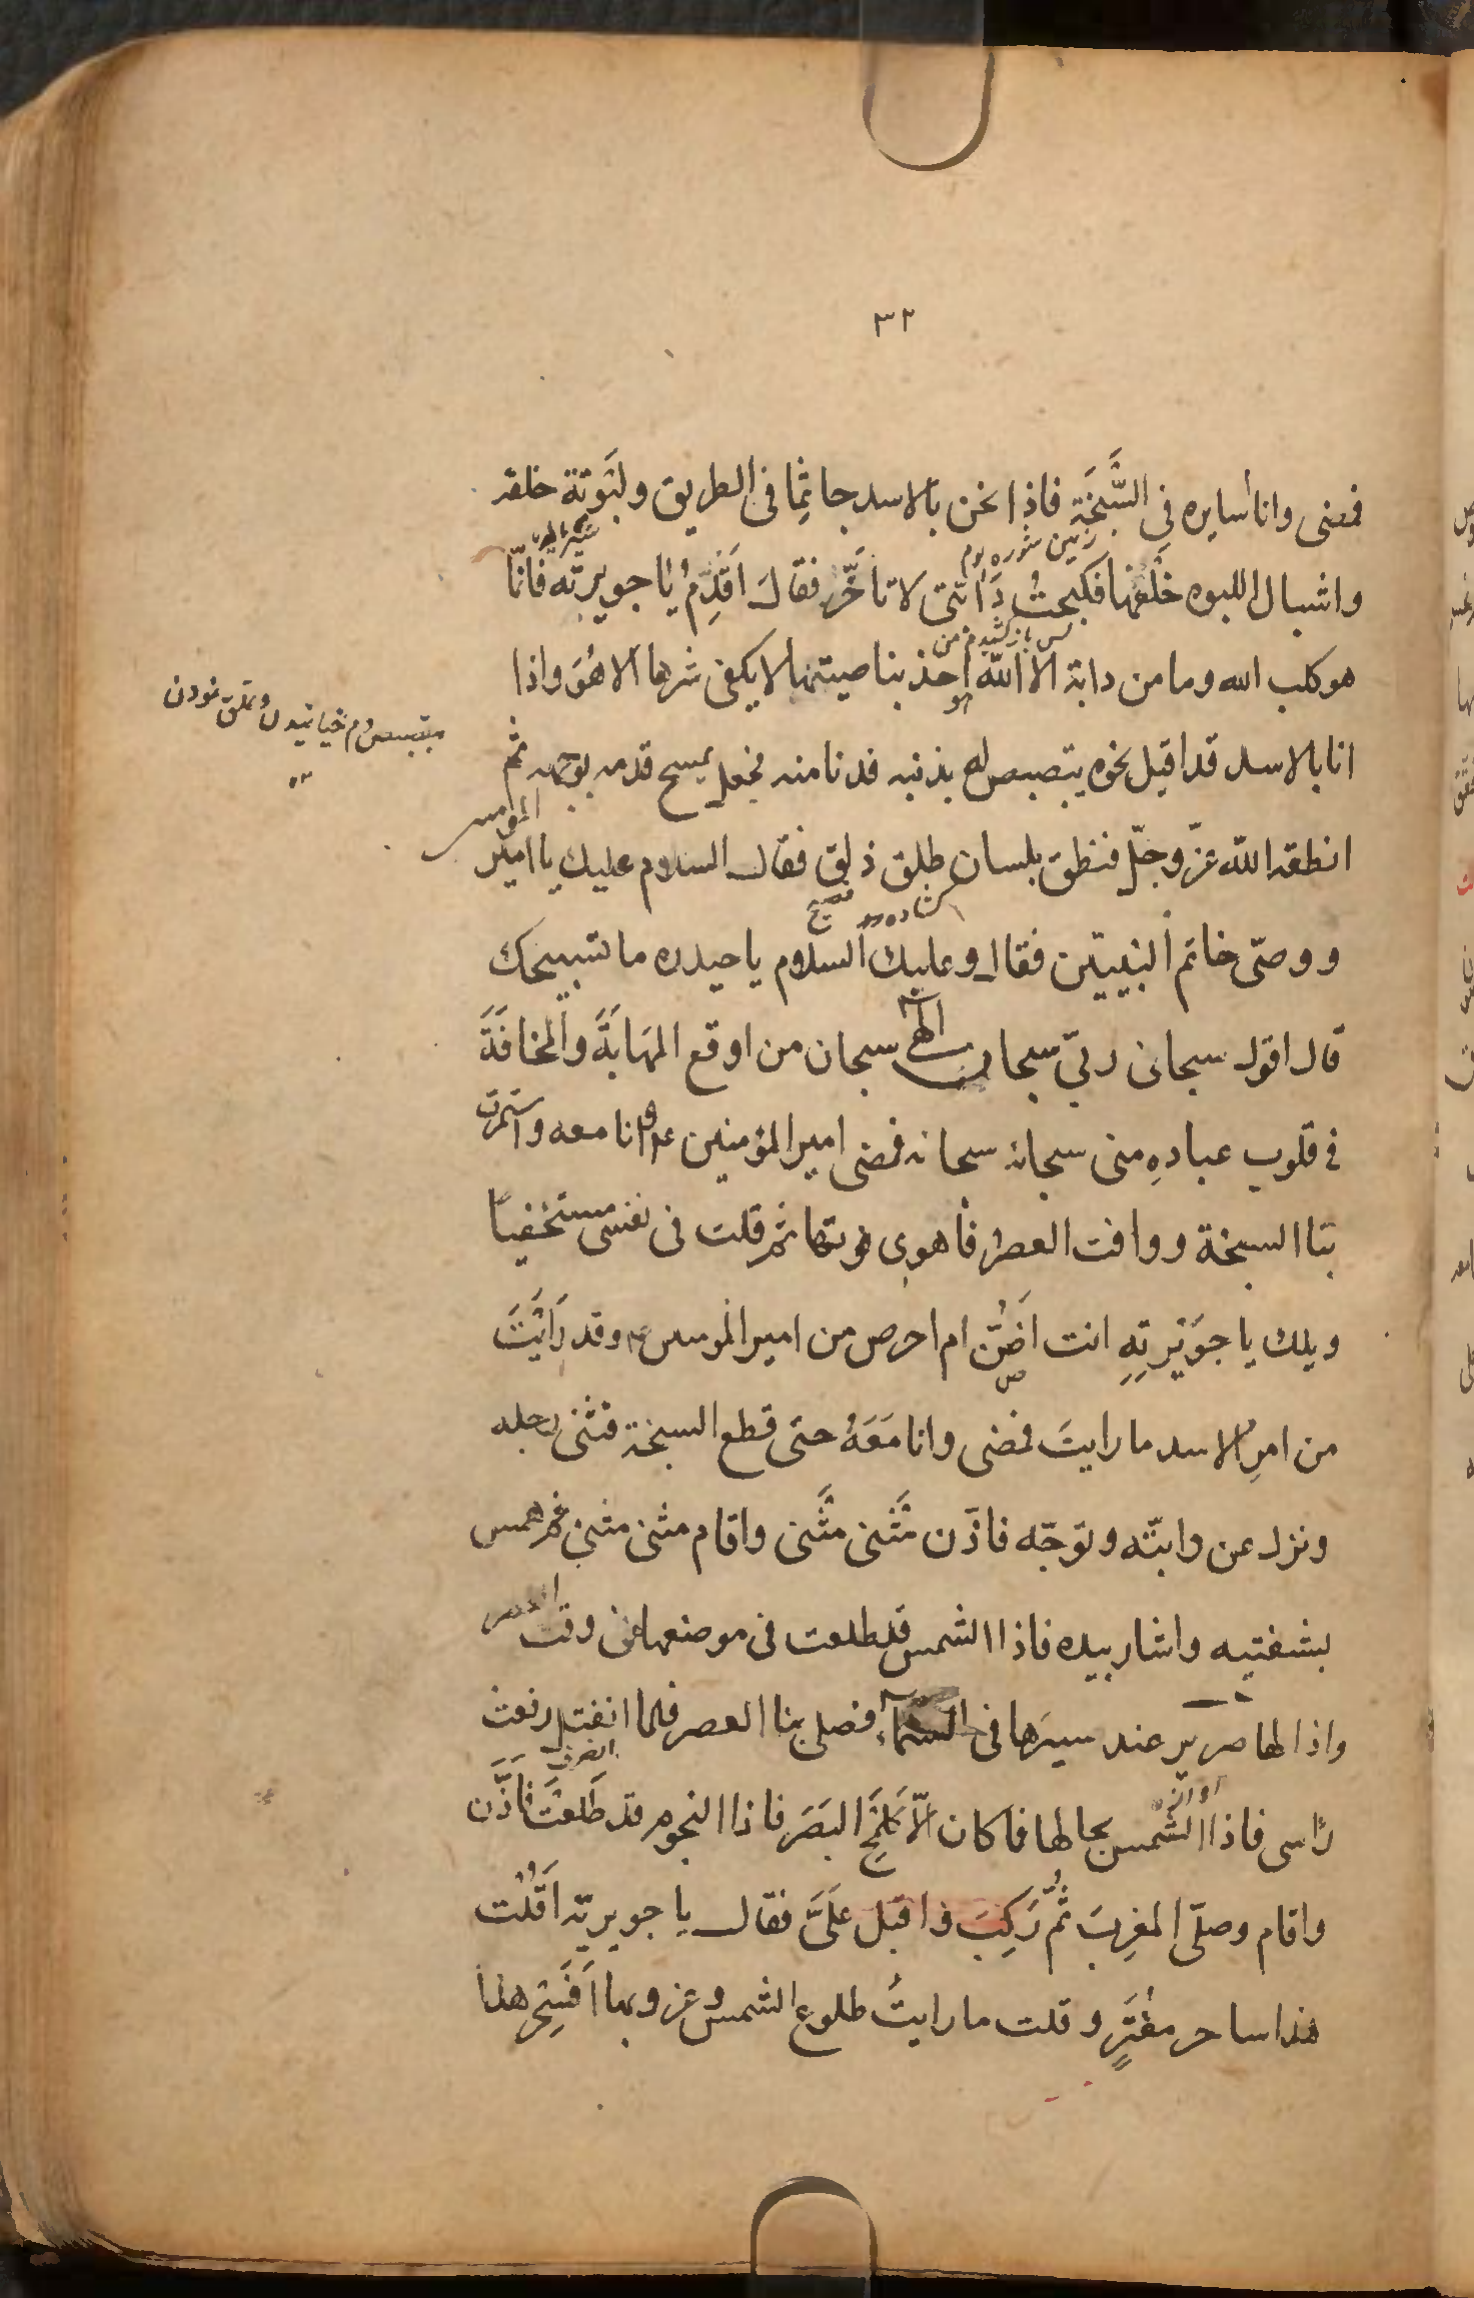 ٣٢
فمضى وانا سايره فى السَّبَخَة فاذا نحن بالاسد جاثِمًا فى الطريق ولبَوته خلفه
زمين شوره بوم
واشبال اللبوه خلفهما فكبحتُ دَابتى لا تاخَّر فقال اَقْدِمْ يا جويرته فانّما
هو كلب الله وما من دابة الا الله اخذ بناصيتها لا يكفى شرها الا هُوَ واذا
هو
انا بالاسد قد اقبل نحوه يتبصبص له بذنبه فدنا منه فجعل يمسح قدمه بوجهه ثم
دم خبانيدن و تملق نمودن
انطقه الله عزّ وجلّ فنطق بلسان طلق ذلق فقال السلام عليك يا امير المومنين
كشاده فصيح
ووصىّ خاتم النبيين فقال وعليك السلام يا حيدره ما تسبيحك
قال اقول سبحان ربى سبحان الهى سبحان من اوقع المَهَابَةَ والمخافَةَ
فى قلوب عبادهِ منى سبحانه سبحانه فمضى امير المؤمنين عم وانا معه واستمرت
بنا السبخة ووافت العصر فاهوى فوتها ثم قلت فى نفسى مستخفيًا
ويلك يا جوَيْرِتِهِ انت اَضَنُّ ام احرص من امير المومنين عم وقد رَاَيْتَ
من امرِ الاسد ما رايتَ فمضى وانا مَعَهُ حتى قطع السبخة فثنى رجله
ونزل عن دابتّه وتوجّه فاذّن مَثْنى مَثْنى واقام مثنى مثنى ثم همس
بشفتيه واشار بيده فاذا الشمس قد طلعت فى موضعها من وقت العصر
واذا لها صرير عند سيرها فى السّمآء فصلى بنا العصر فلما انفتل رفعت
انصرف
راسى فاذا الشمس بحالها فما كان الاّ كَلمْحِ البَصَر فاذا النجوم قد طَلعَتْ فَاَذَّن
واقام وصلّى المغرِبَ ثمّ رَكِبَ واقبل عَلَىَّ فقال يا جويريته اَقُلْت
هذا ساحر مفْتَرٍ وقلت ما رايتُ طلوع الشمس وغروبها اَفَسِحر هذا